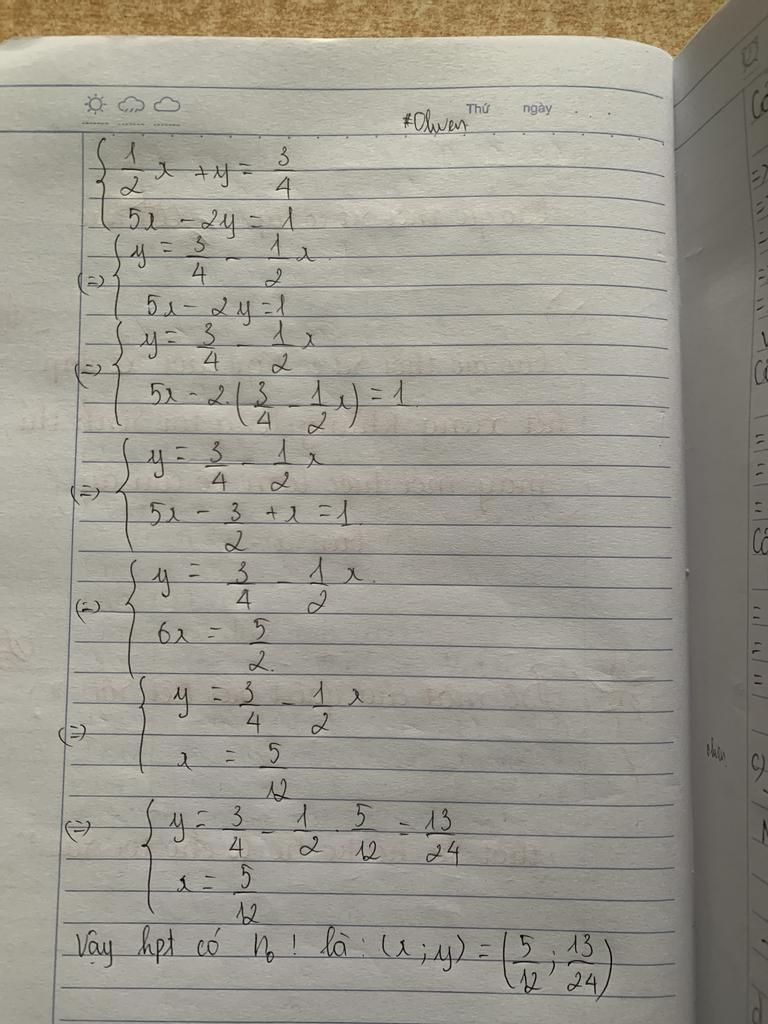 Thứ ngày
#Ohuen
{ 1/2 x + y = 3/4
5x - 2y = 1
(=) { y = 3/4 - 1/2 x
5x - 2y = 1
(=) { y = 3/4 - 1/2 x
5x - 2.(3/4 - 1/2 x) = 1
(=) { y = 3/4 - 1/2 x
5x - 3/2 + x = 1
(=) { y = 3/4 - 1/2 x
6x = 5/2
(=) { y = 3/4 - 1/2 x
x = 5/12
(=) { y = 3/4 - 1/2 . 5/12 = 13/24
x = 5/12
Vậy hpt có no ! là : (x ; y) = (5/12 ; 13/24)